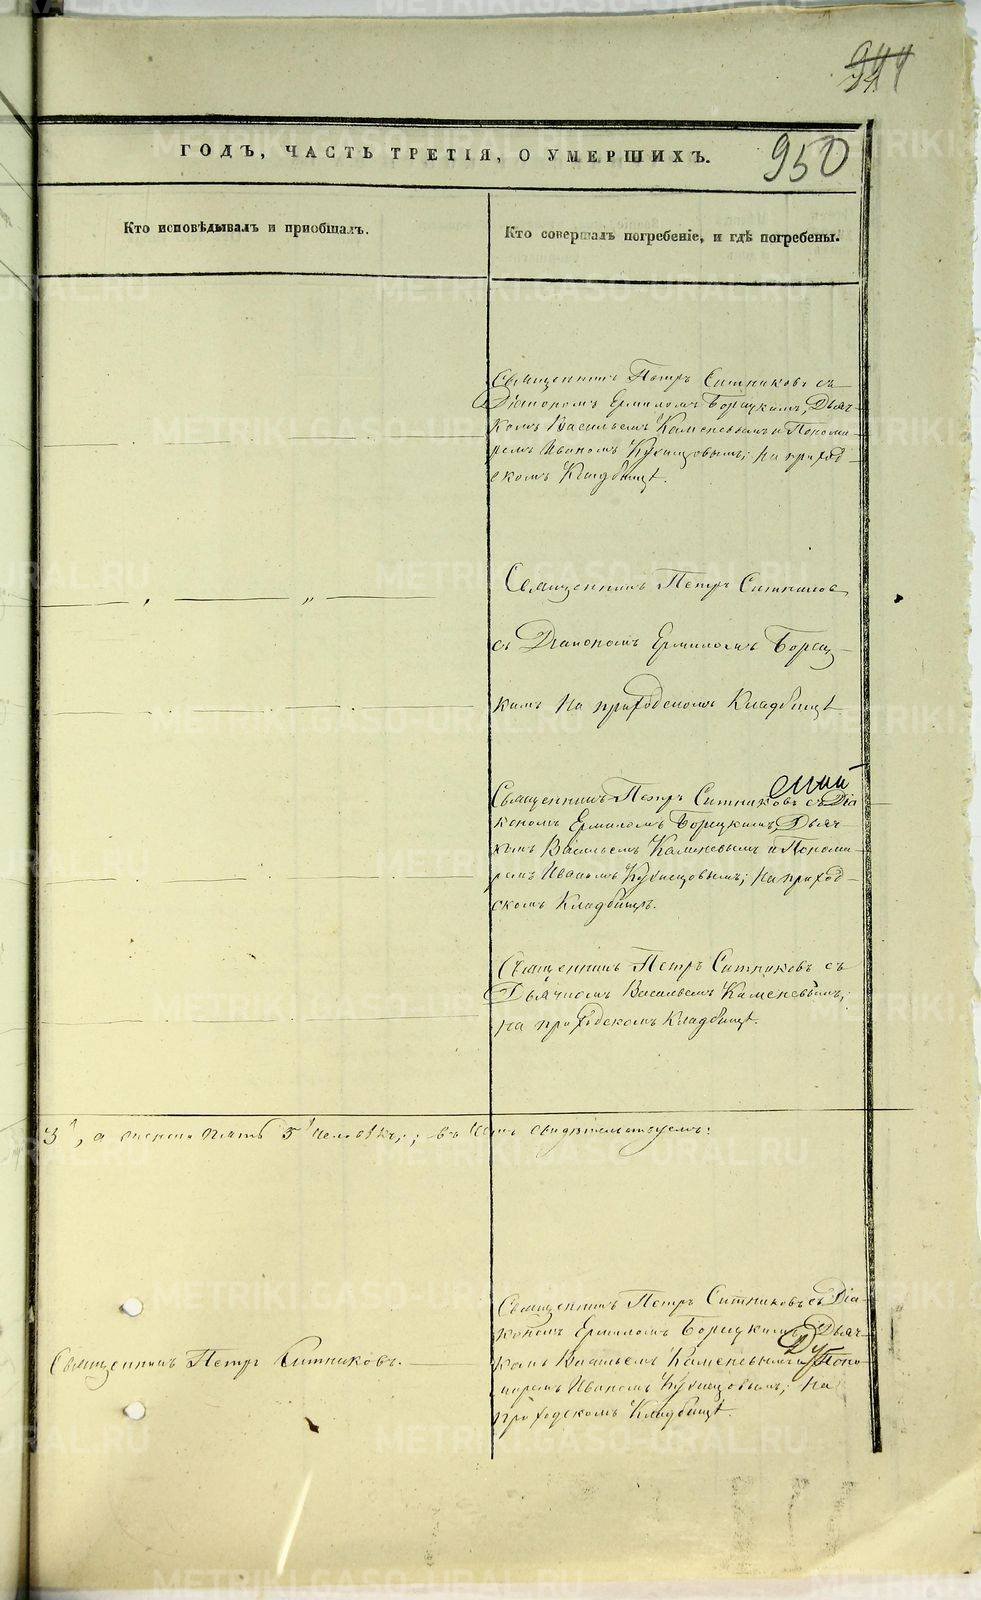 944
950
ГОДЪ, ЧАСТЬ ТРЕТІЯ, О УМЕРШИХЪ.
Кто исповѣдывалъ и пріобщалъ.
Кто совершалъ погребеніе, и гдѣ погребены.
Священникъ Петръ Ситниковъ съ
Діакономъ Ермиломъ Борецкимъ, Дьяч-
комъ Васильемъ Каменевымъ и Понома-
ремъ Иваномъ Кузнецовымъ; на приход-
скомъ Кладбищѣ.
Священникъ Петръ Ситниковъ
съ Діакономъ Ермиломъ Борец-
кимъ на приходскомъ Кладбищѣ
Священникъ Петръ Ситниковъ съ Діа
кономъ Ермиломъ Борецкимъ, Дьяч-
комъ Васильемъ Каменевымъ и Понома-
ремъ Иваномъ Кузнецовымъ; на приход-
скомъ Кладбищѣ.
Священникъ Петръ Ситниковъ съ
Дьячкомъ Васильемъ Каменевымъ;
на приходскомъ Кладбищѣ.
3, а пять 5 человѣкъ; въ чемъ свидѣтельствуемъ:
Священникъ Петръ Ситниковъ.
Священникъ Петръ Ситниковъ съ Діа-
кономъ Ермиломъ Борецкимъ, Дьяч-
комъ Васильемъ Каменевымъ и Поно-
маремъ Иваномъ Кузнецовымъ; на
приходскомъ Кладбищѣ.
METRIKI.GASO-URAL.RU